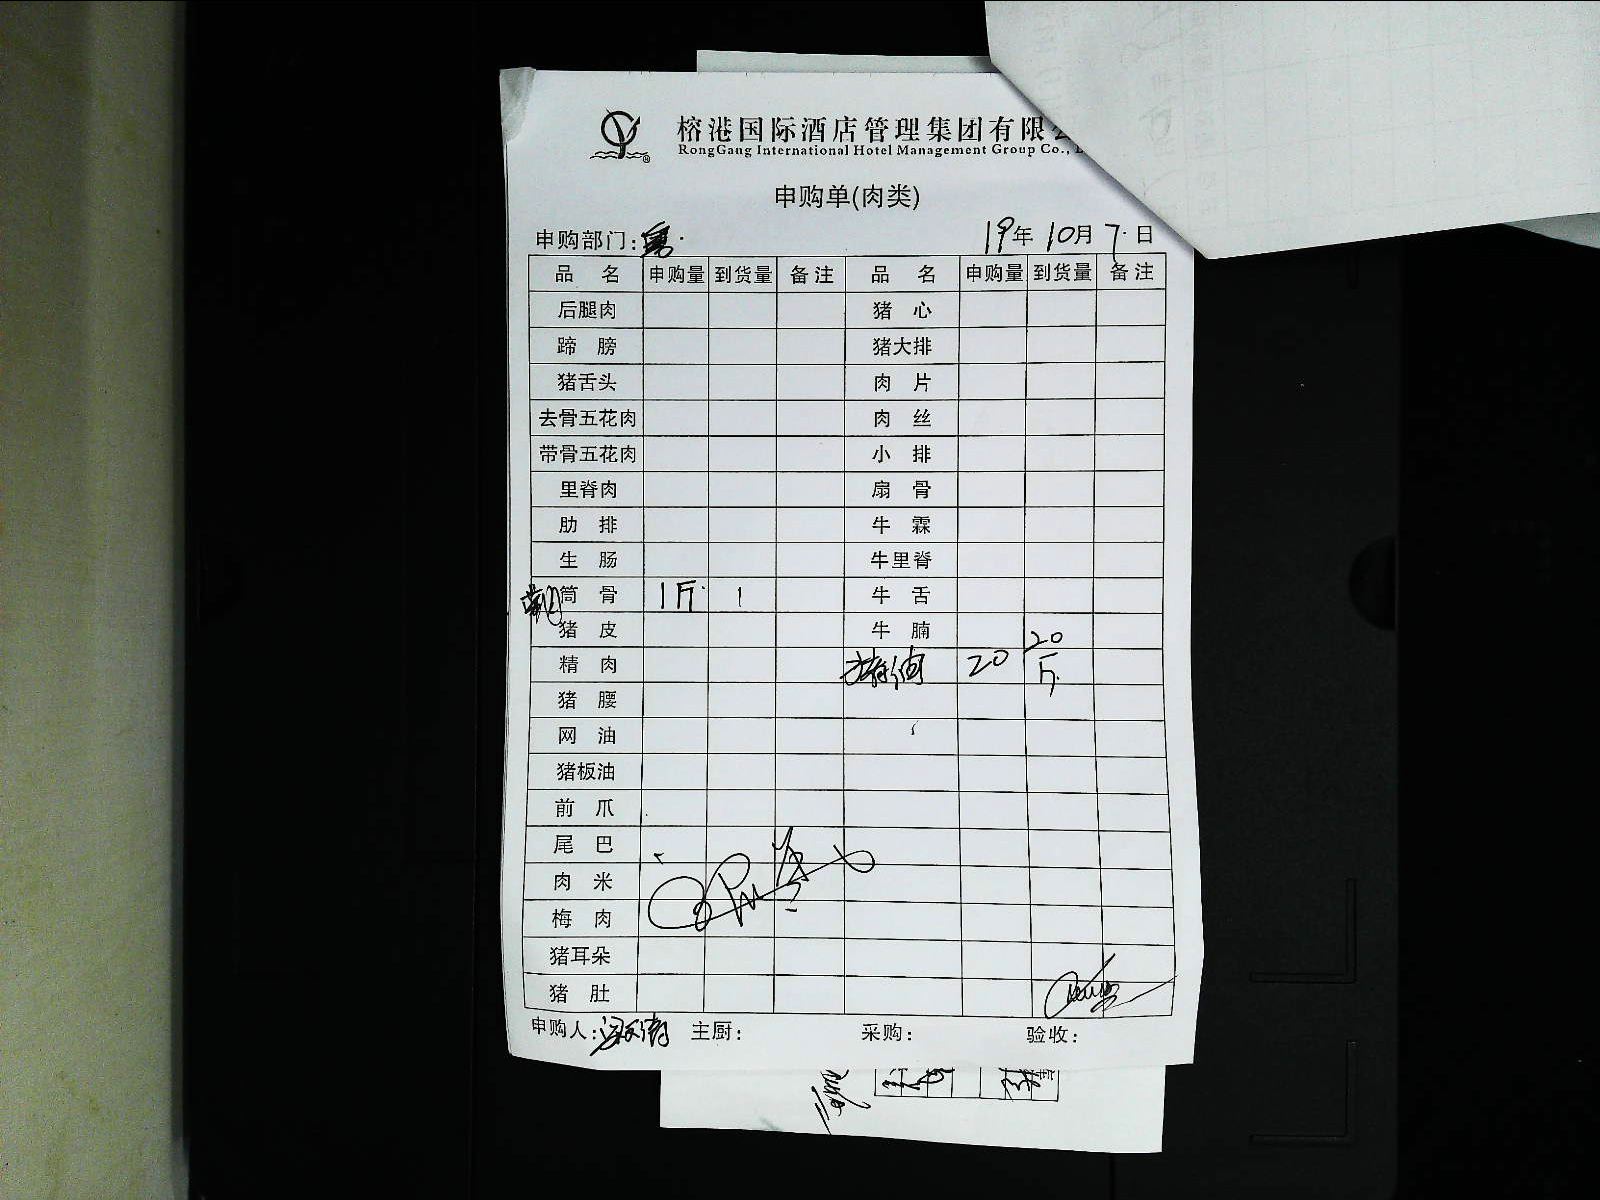 榕港国际酒店管理集团有限
RongGang International Hotel Management Group Co.,
申购单(肉类)
申购部门: 19年 10月 7日
品 名 申购量 到货量 备注 品 名 申购量 到货量 备注
后腿肉 猪 心
蹄 膀 猪大排
猪舌头 肉 片
去骨五花肉 肉 丝
带骨五花肉 小 排
里脊肉 扇 骨
肋 排 牛 霖
生 肠 牛里脊
筒 骨 1斤 1 牛 舌
猪 皮 牛 腩
精 肉 猪油 20 20斤
猪 腰
网 油
猪板油
前 爪
尾 巴
肉 米
梅 肉
猪耳朵
猪 肚
申购人: 主厨: 采购: 验收: